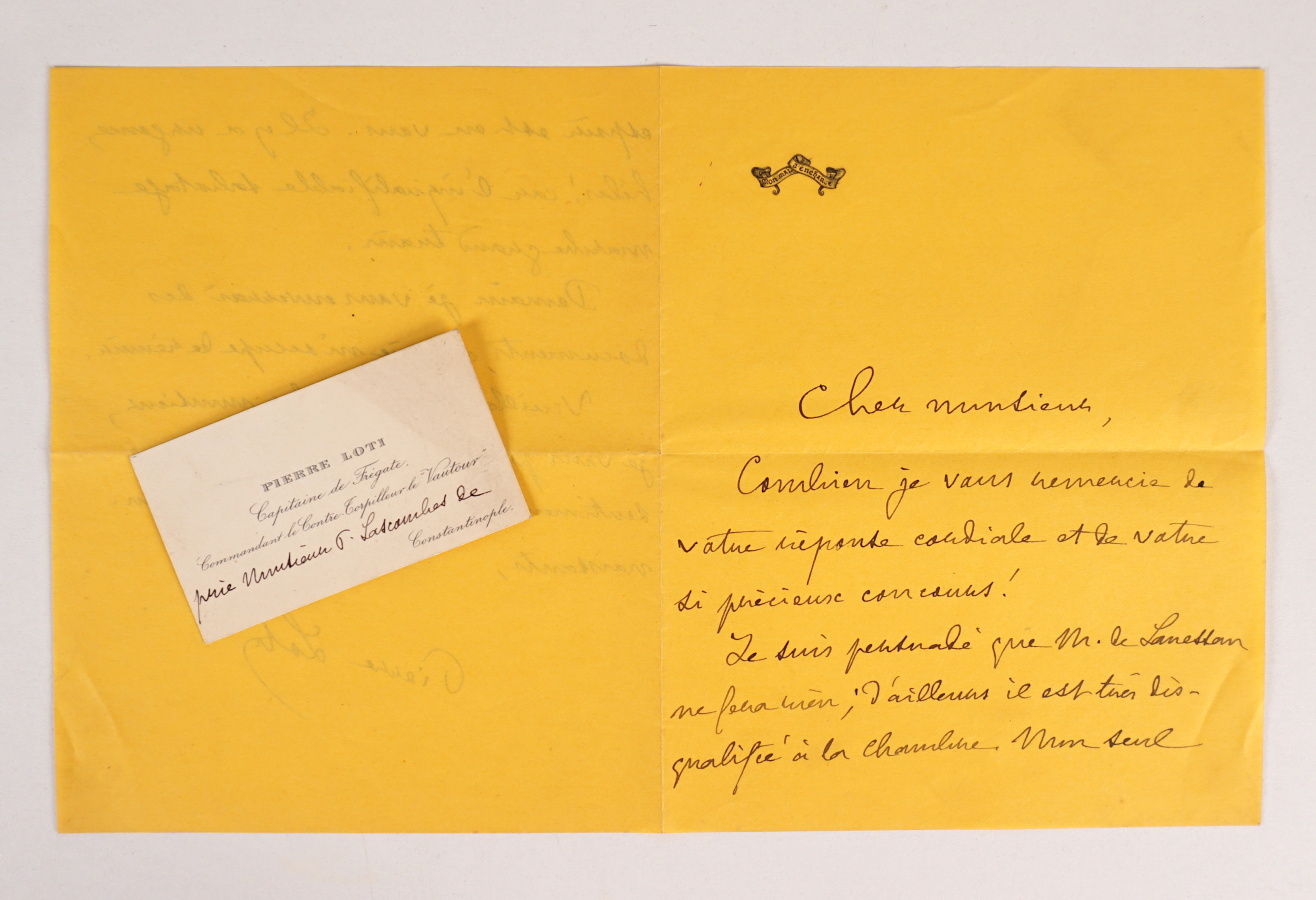 Mon mal j'enchante
Cher monsieur,
Combien je vous remercie de
votre réponse cordiale et de votre
si précieux concours!
Je suis persuadé que M. de Lanessan
ne fera rien; d'ailleurs il est très dis-
qualifié à la chambre. Mon seul
PIERRE LOTI
Capitaine de Frégate.
Commandant le Contre-Torpilleur le "Vautour"
prie Monsieur P. Lascombes de
Constantinople.
espoir est en vous. Il y a urgence,
hélas! car l'inqualifiable sabotage
marche grand train.
Demain je vous enverrai des
documents
Pierre Loti